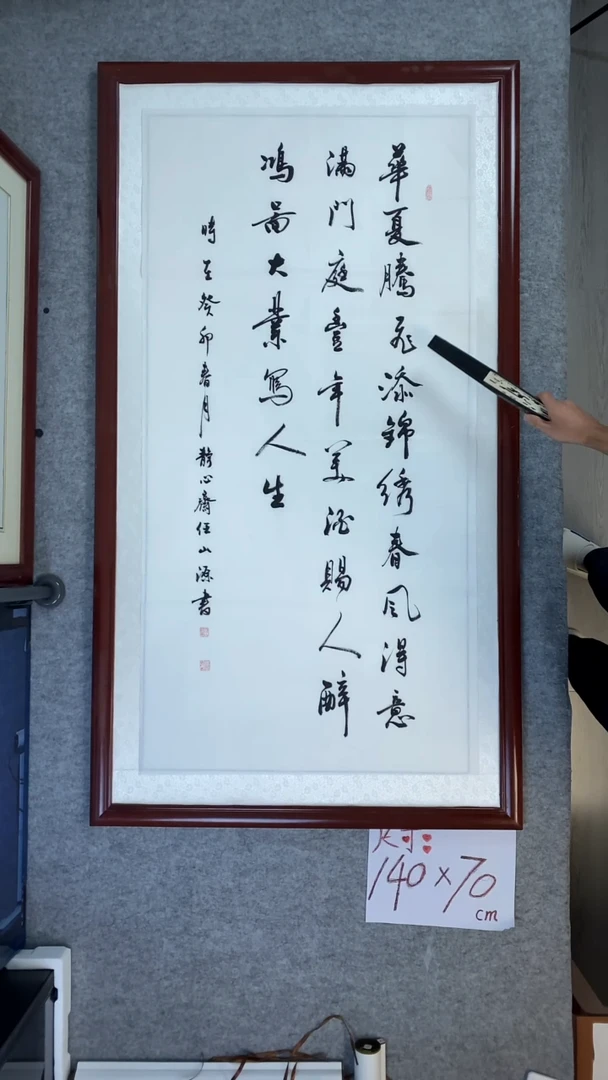 華夏騰飛添錦绣春風得意
滿門庭豊年美酒賜人醉
鴻啚大業寫人生
時至癸卯春月静心齋任山源書
尺寸:
140×70
cm